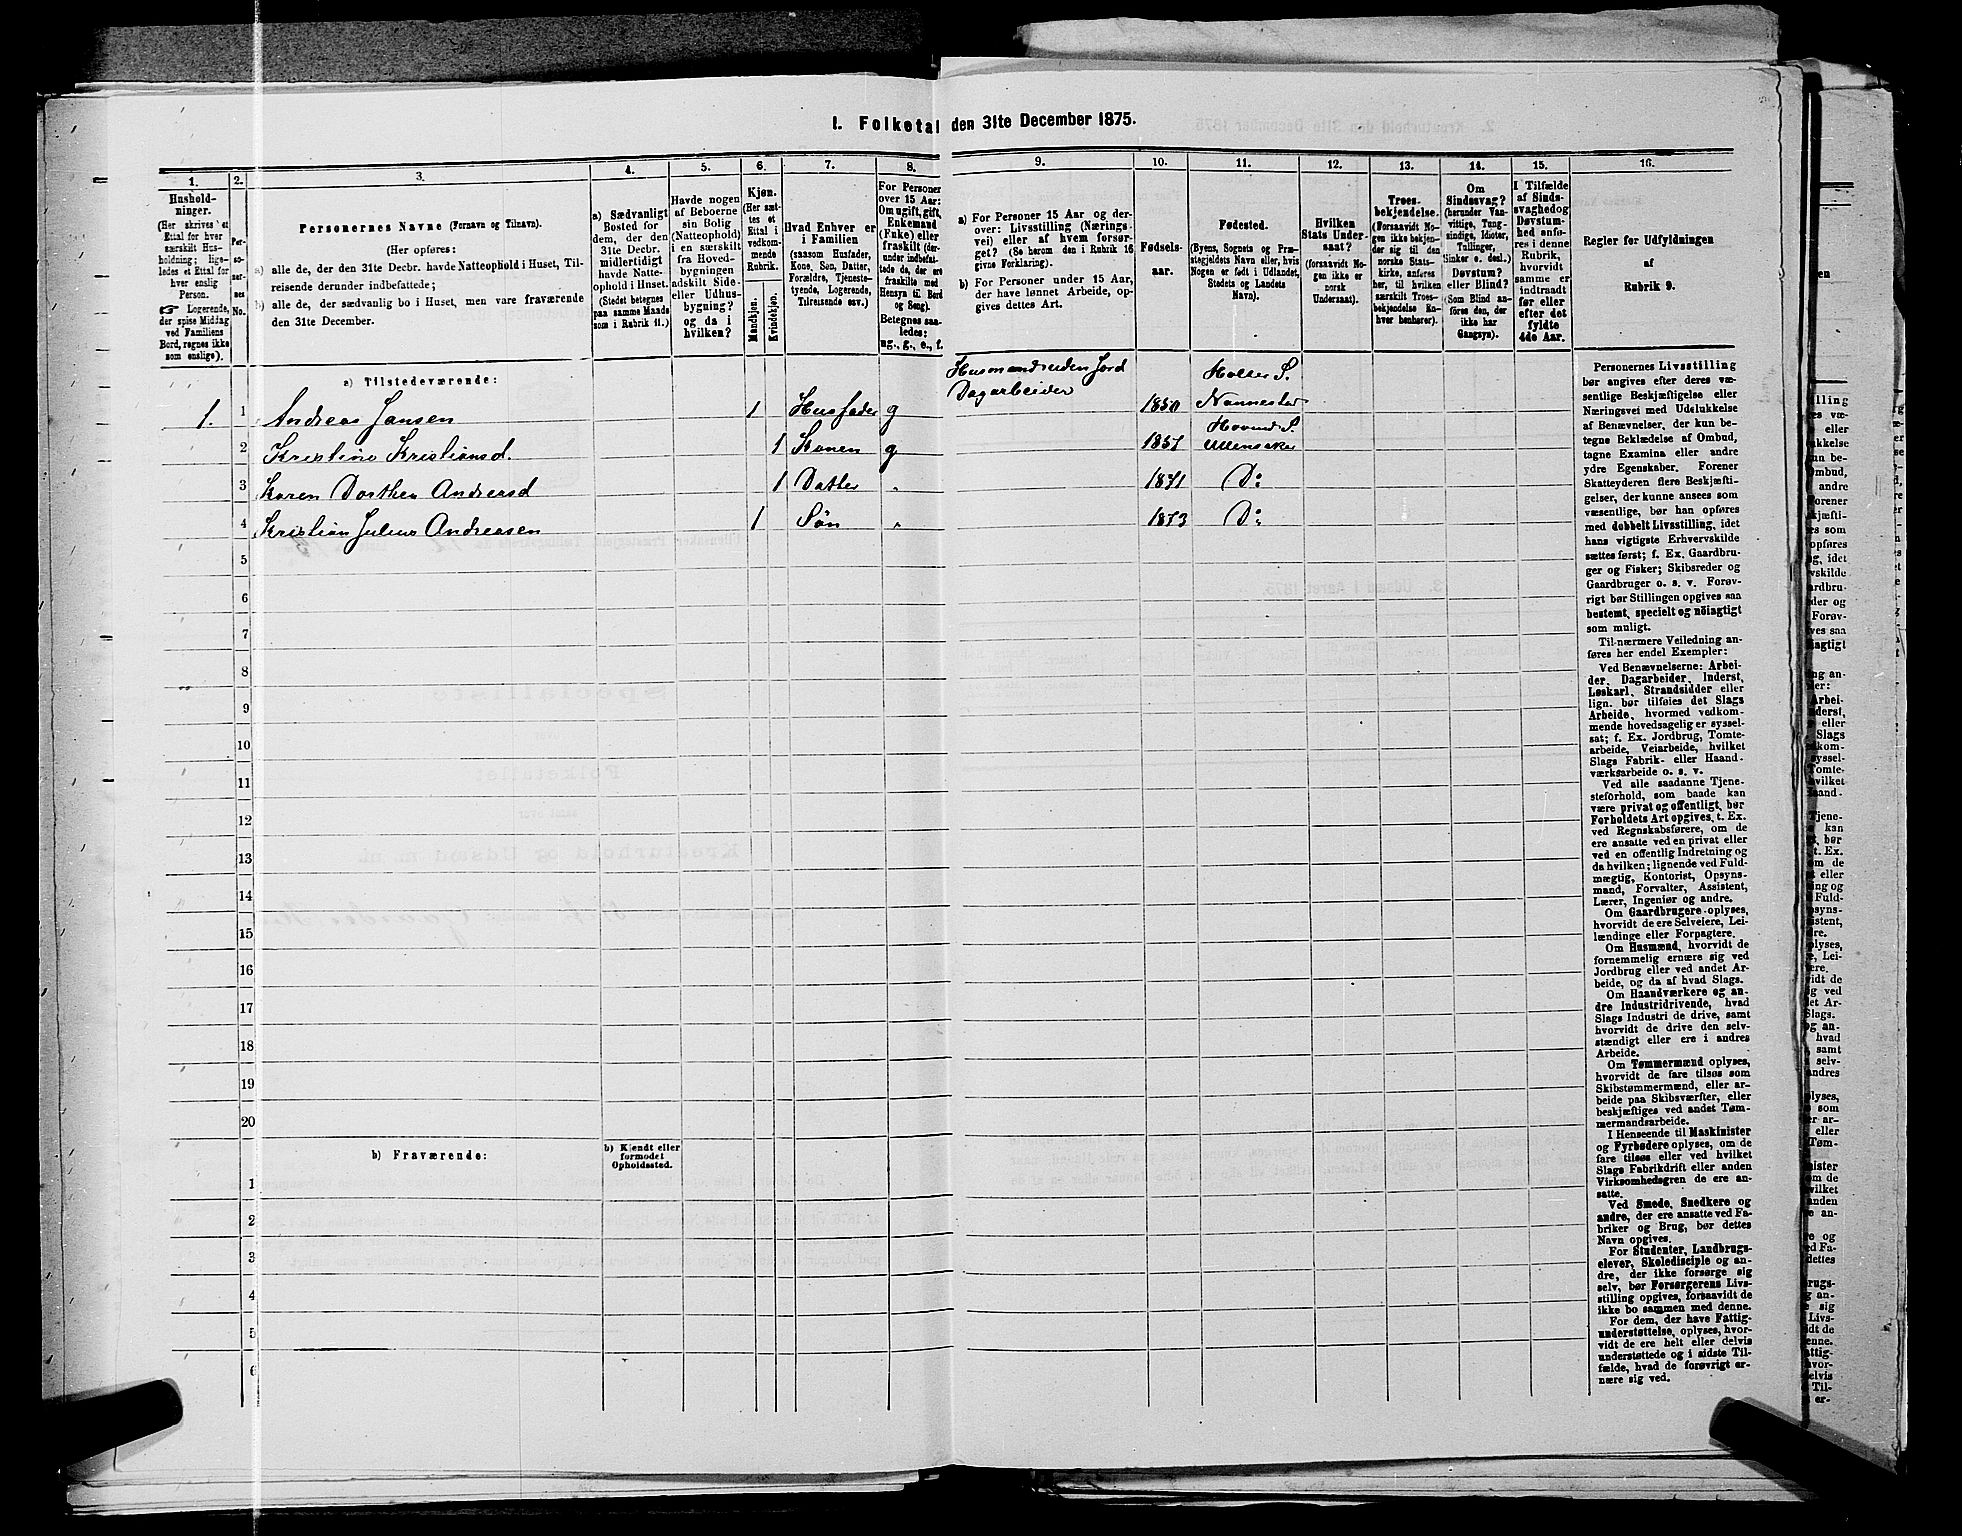 I. Folketal den 31te December 1875.
1.
Husholdninger.
(Her skrives et
Ettal for hver
særskilt Husholdning;
ligeledes et Ettal for
hver enslig
Person.
☞ Logerende,
der spise Middag
ved Familiens
Bord, regnes ikke
som enslige).
2.
Personernes
No.
3.
Personernes Navne (Fornavn og Tilnavn).
(Her opføres:
a) alle de, der den 31te Decbr. havde Natteophold i Huset, Tilreisende
derunder indbefattede;
b) alle de, der sædvanlig bo i Huset, men vare fraværende
den 31te December.
4.
a) Sædvanligt
Bosted for
dem, der den
31te Decbr.
midlertidigt
havde Natteophold
i Huset.
(Stedet betegnes
paa samme Maade
som i Rubrik 11.)
5.
Havde nogen
af Beboerne
sin Bolig
(Natteophold)
i en særskilt
fra Hovedbygningen
adskilt Side-
eller Udhusbygning?
og da i
hvilken?
6.
Kjøn.
(Her sættes
et
Ettal i
vedkommende
Rubrik.
Mandkjøn.
Kvindekjøn.
7.
Hvad Enhver er
i Familien
(saasom Husfader,
Kone, Søn, Datter,
Forældre, Tjenestetyende,
Logerende,
Tilreisende osv.)
8.
For Personer
over 15 Aar:
Om ugift, gift,
Enkemand
(Enke) eller
fraskilt (derunder
indbefattede
de, der ere
fraskilte med
Hensyn til Bord
og Seng).
Betegnes saaledes:
ug., g., e., f.
9.
a) For Personer 15 Aar og derover:
Livsstilling (Næringsvei)
eller af hvem forsørget?
(Se herom den i Rubrik 16
givne Forklaring).
b) For Personer under 15 Aar,
der have lønnet Arbeide, opgives
dettes Art.
10.
Fødselsaar.
11.
Fødested.
(Byens, Sognets og Præstegjeldets
Navn eller, hvis
Nogen er født i Udlandet,
Stedets og Landets
Navn).
12.
Hvilken
Stats Undersaat?
(forsaavidt Nogen
ikke er
norsk
Undersaat).
13.
Troesbekjendelse.
(Forsaavidt Nogen
ikke bekjender
sig til den
norske Statskirke,
anføres
her, til hvilken
særskilt Troesbekjendelse
Enhver
henhører).
14.
Om
Sindssvag?
(herunder Vanvittige,
Tungsindige,
Idioter,
Tullinger,
Sinker o. desl.)
Døvstum?
eller Blind?
(Som Blind anføres
den, der
ikke har
Gangsyn).
15.
I Tilfælde
af Sindssvaghed
og
Døvstumhed
anføres
i denne
Rubrik,
hvorvidt
samme er
indtraadt
før eller
efter det
fyldte
4de Aar.
16.
Regler for Udfyldningen
af
Rubrik 9.
a) Tilstedeværende:
1. 1 Andreas Jansen 1 Husfader g Husmand uden Jord Dagarbeider 1850 Holter S. Nannestad
2 Kristine Kristiansd. 1 Konen g 1851 Hovind S. Ullensaker
3 Karen Dorthea Andreasd 1 Datter „ 1871 Do
4 Kristian Julius Andreasen 1 Søn „ 1873 Do
5
6
7
8
9
10
11
12
13
14
15
16
17
18
19
20
b) Fraværende:
b) Kjendt eller
formodet
Opholdssted.
1
2
3
4
5
6
Personernes Livsstilling
bør angives efter deres væsentlige
Beskjæftigelse eller
Næringsvei med Udelukkelse
af Benævnelser, der kun betegne
Beklædelse af Ombud,
tagne Examina eller andre
ydre Egenskaber. Forener
Skatteyderen flere Beskjæftigelser,
der kunne ansees som
væsentlige, bør han opføres
med dobbelt Livsstilling, idet
hans vigtigste Erhvervskilde
sættes først; f. Ex. Gaardbruger
og Fisker; Skibsreder og
Gaardbruger o. s. v. Forøvrigt
bør Stillingen opgives saa
bestemt, specielt og nøiagtigt
som muligt.
Til nærmere Veiledning anføres
her endel Exempler:
Ved Benævnelserne: Arbeider,
Dagarbeider, Inderst,
Løskarl, Strandsidder eller
lign. bør tilføies det Slags
Arbeide, hvormed vedkommende
hovedsagelig er sysselsat;
f. Ex. Jordbrug, Tomtearbeide,
Veiarbeide, hvilket
Slags Fabrik- eller Haandværksarbeide
o. s. v.
Ved alle saadanne Tjenesteforhold,
som baade kan
være privat og offentligt, bør
Forholdets Art opgives, t. Ex.
ved Regnskabsførere, om de
ere ansatte ved en privat eller
ved en offentlig Indretning og
da hvilken; lignende ved Fuldmægtig,
Kontorist, Opsynsmand,
Forvalter, Assistent,
Lærer, Ingeniør og andre.
Om Gaardbrugere oplyses,
hvorvidt de ere Selveiere, Leilændinge
eller Forpagtere.
Om Husmænd, hvorvidt de
fornemmelig ernære sig ved
Jordbrug eller ved andet Arbeide,
og da af hvad Slags.
Om Haandværkere og andre
Industridrivende, hvad
Slags Industri de drive, samt
hvorvidt de drive den selvstændigt
eller ere i andres
Arbeide.
Om Tømmermænd oplyses,
hvorvidt de fare tilsøs som
Skibstømmermænd, eller arbeide
paa Skibsværfter, eller
beskjæftiges ved andet Tømmermandsarbeide.
I Henseende til Maskinister
og Fyrbødere oplyses, om de
fare tilsøs eller ved hvilket
Slags Fabrikdrift eller anden
Virksomhedsgren de ere ansatte.
Ved Smede, Snedkere og
andre, der ere ansatte ved Fabriker
og Brug, bør dettes
Navn opgives.
For Studenter, Landbrugselever,
Skoledisciple og andre,
der ikke forsørge sig
selv, bør Forsørgerens Livsstilling
opgives, forsaavidt de
ikke bo sammen med denne.
For dem, der have Fattigunderstøttelse,
oplyses, hvorvidt
de ere helt eller delvis
understøttede og i sidste Tilfælde,
hvad de forøvrigt ernære
sig ved.